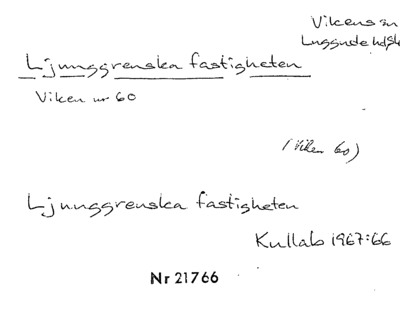 Vikens sn
Luggude hd, Sk
Ljunggrenska fastigheten
Viken nr 60
(Viken 60)
Ljunggrenska fastigheten
Kullab 1967:66
Nr 21766